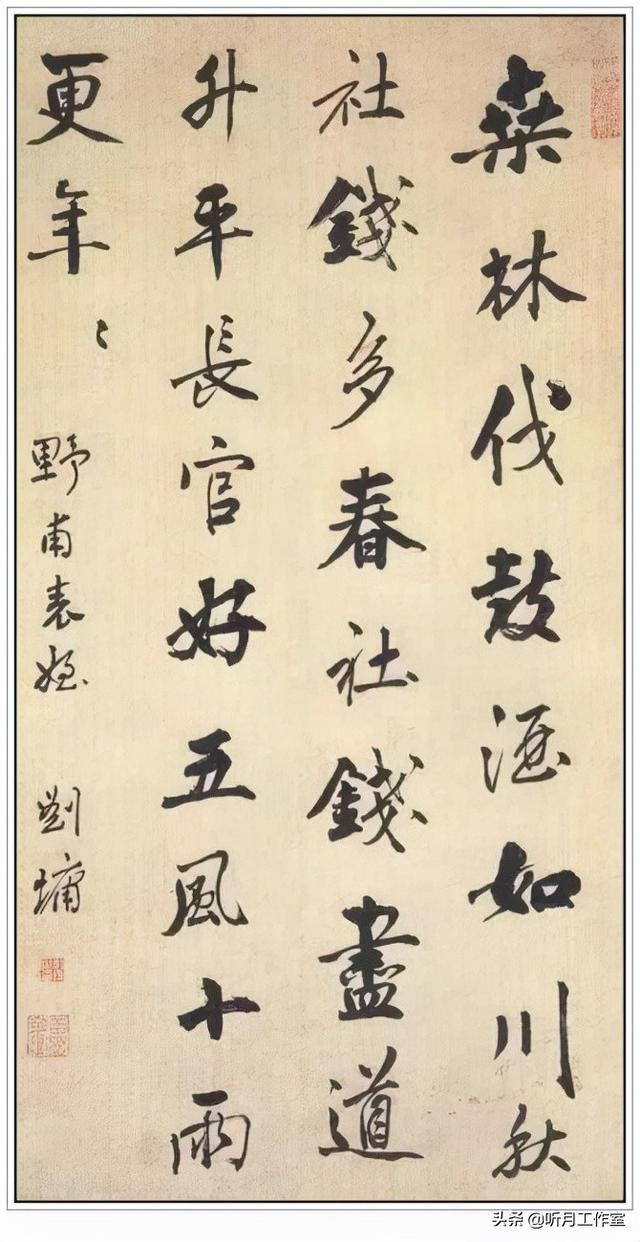 桑林伐鼓酒如川秋
社錢多春社錢盡道
升平長官好五風十雨
更年〻
野甫表姪
劉墉
头条@听月工作室